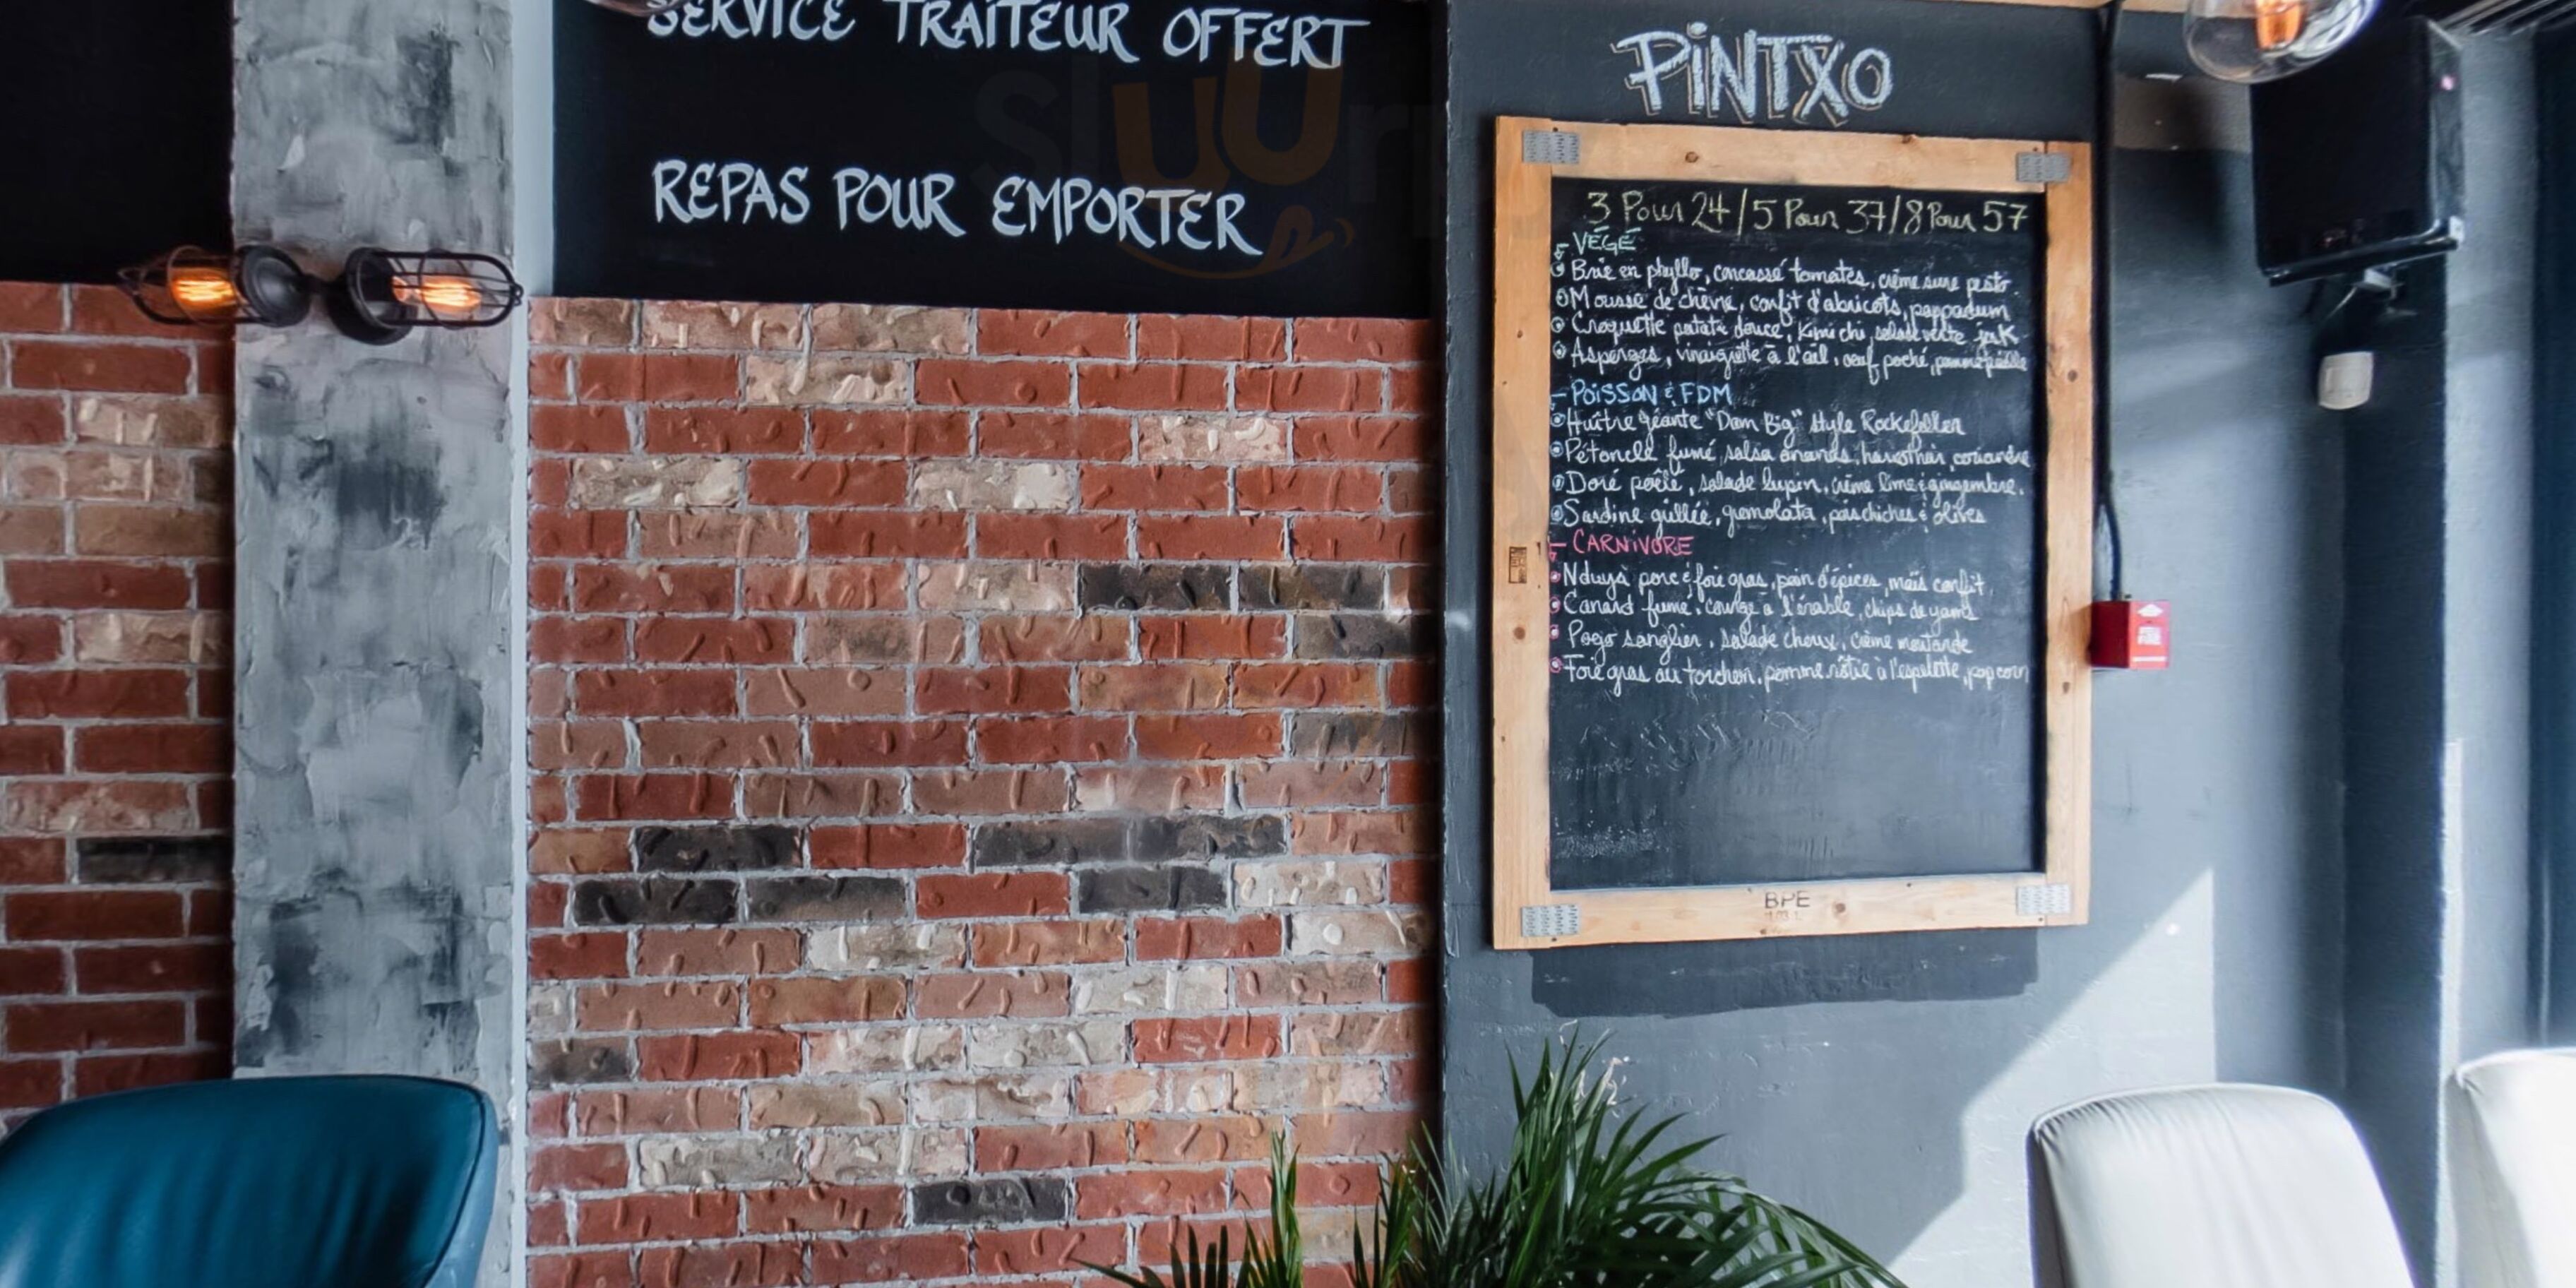 SERVICE TRAITEUR OFFERT
REPAS POUR EMPORTER
PINTXO
3 Pour 24/5 Pour 37/8 Pour 57
- VÉGÉ
Brie en phyllo, concassé tomates, crème sure pesto
Mousse de chèvre, confit d'abricots, pappadum
Croquette patate douce, kimichi, salade verte jerk
Asperges, vinaigrette à l'ail, oeuf poché, parmo
- POiSSON & FDM
Huître géante "Dam Big" style Rockefeller
Pétoncle fumé, salsa ananas, coriandre
Doré poêlé, salade lupin, crème lime & gingembre.
Sardine grillée, gremolata, pois chiches & olives
- CARNiVORE
Nduya porc & foie gras, pain d'épices, maïs confit
Canard fumé, courge à l'érable, chips de yams
Pogo sanglier, salade choux, crème moutarde
Foie gras au torchon, pomme rôtie à l'espelette, pop corn
BPE